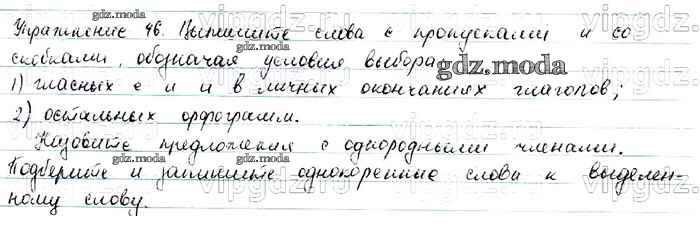 Упражнение 46. Выпишите слова с пропусками и со
скобками, обозначая условия выбора
1) гласных е и и в личных окончаниях глаголов;
2) остальных орфограмм.
Назовите предложения с однородными членами.
Подберите и запишите однокоренные слова к выделен-
ному слову.
gdz.moda
gdz.moda
gdz.moda
gdz.moda
gdz.moda
gdz.moda
gdz.moda
gdz.moda
vipgdz.ru